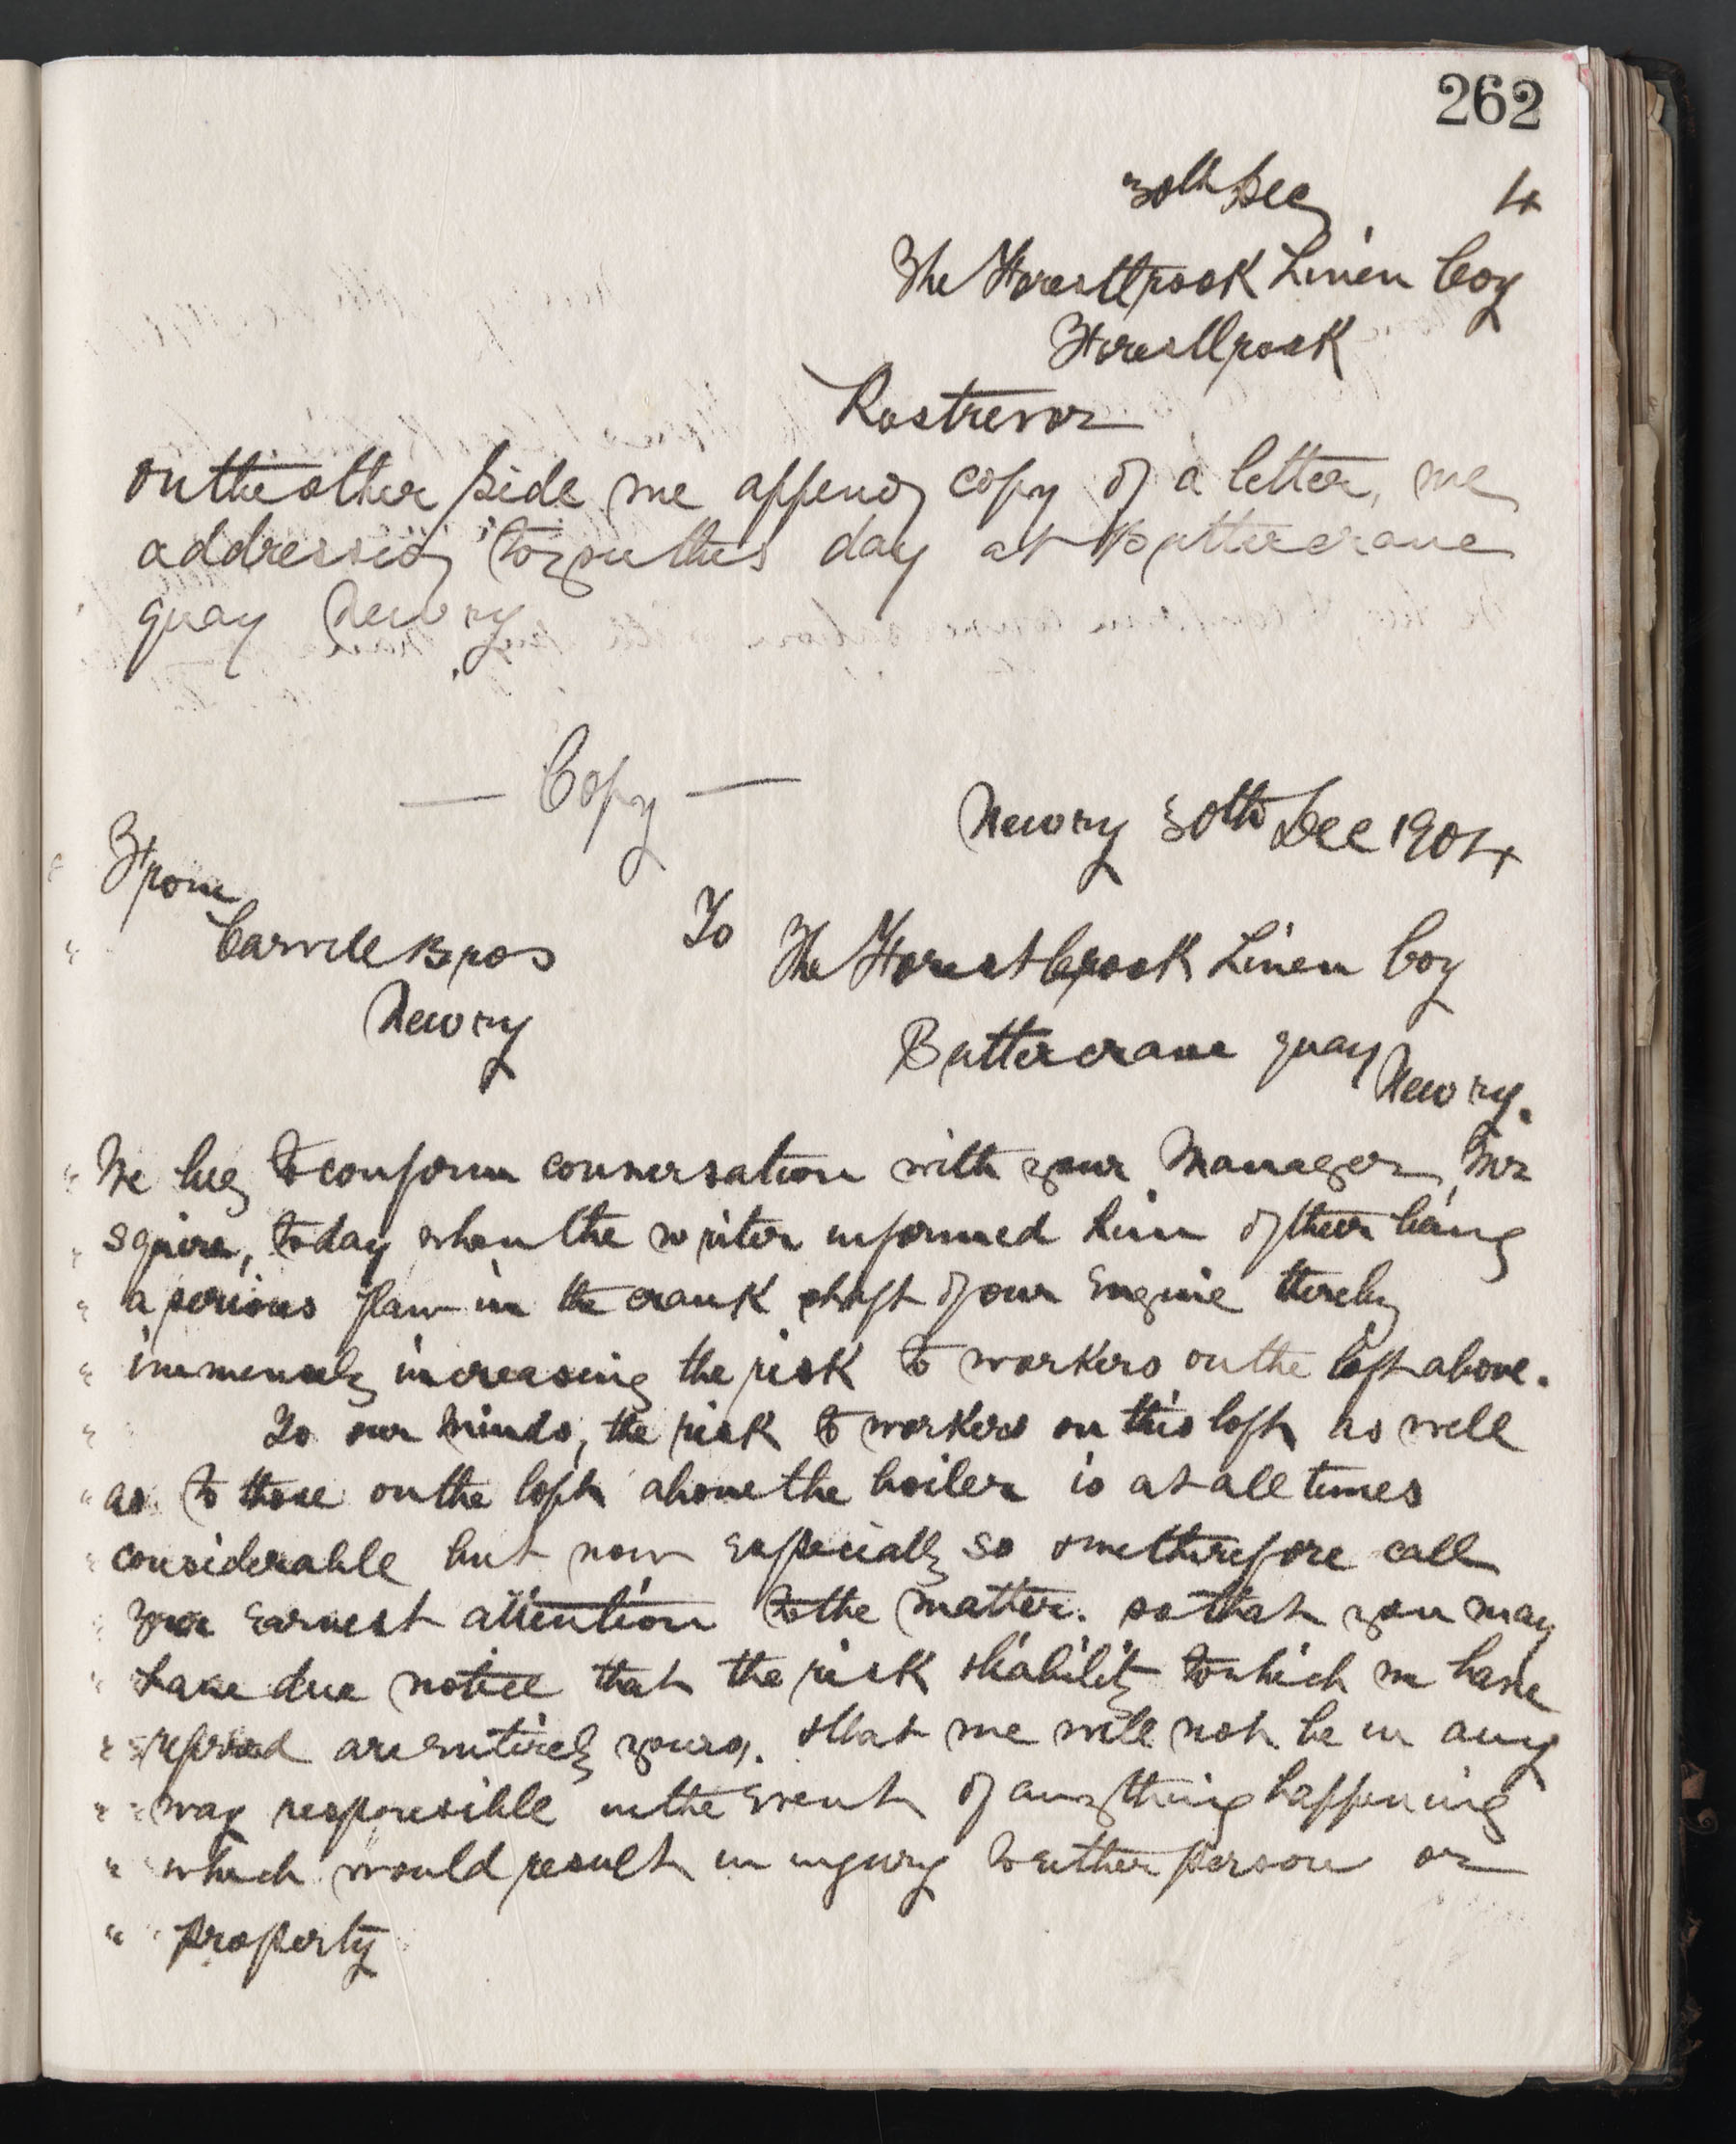 262
30th Dec 4
The Forestbrook Linen Coy
Forestbrook
Rostrevor
On the other side we append copy of a letter, we
addressed to you this day at Buttercrane
quay Newry.
— Copy —
Newry 30th Dec 1904
From
Carvill Bros
Newry
To The Forestbrook Linen Coy
Buttercrane quay Newry.
" We beg to confirm conversation with your Manager, Mr
" Squire, today when the writer informed him of their being
" a serious flaw in the crank shaft of our Engine thereby
" immensely increasing the risk to workers on the loft above.
" To our minds, the risk to workers on this loft as well
" as to those on the loft above the boiler is at all times
" considerable but now Especially so & we therefore call
" your Earnest attention to the matter. so that you may
" have due notice that the risk & liability to which we have
" referred are Entirely yours. & that we will not be in any
" way responsible in the Event of anything happening
" which would result in injury to either person or
" property